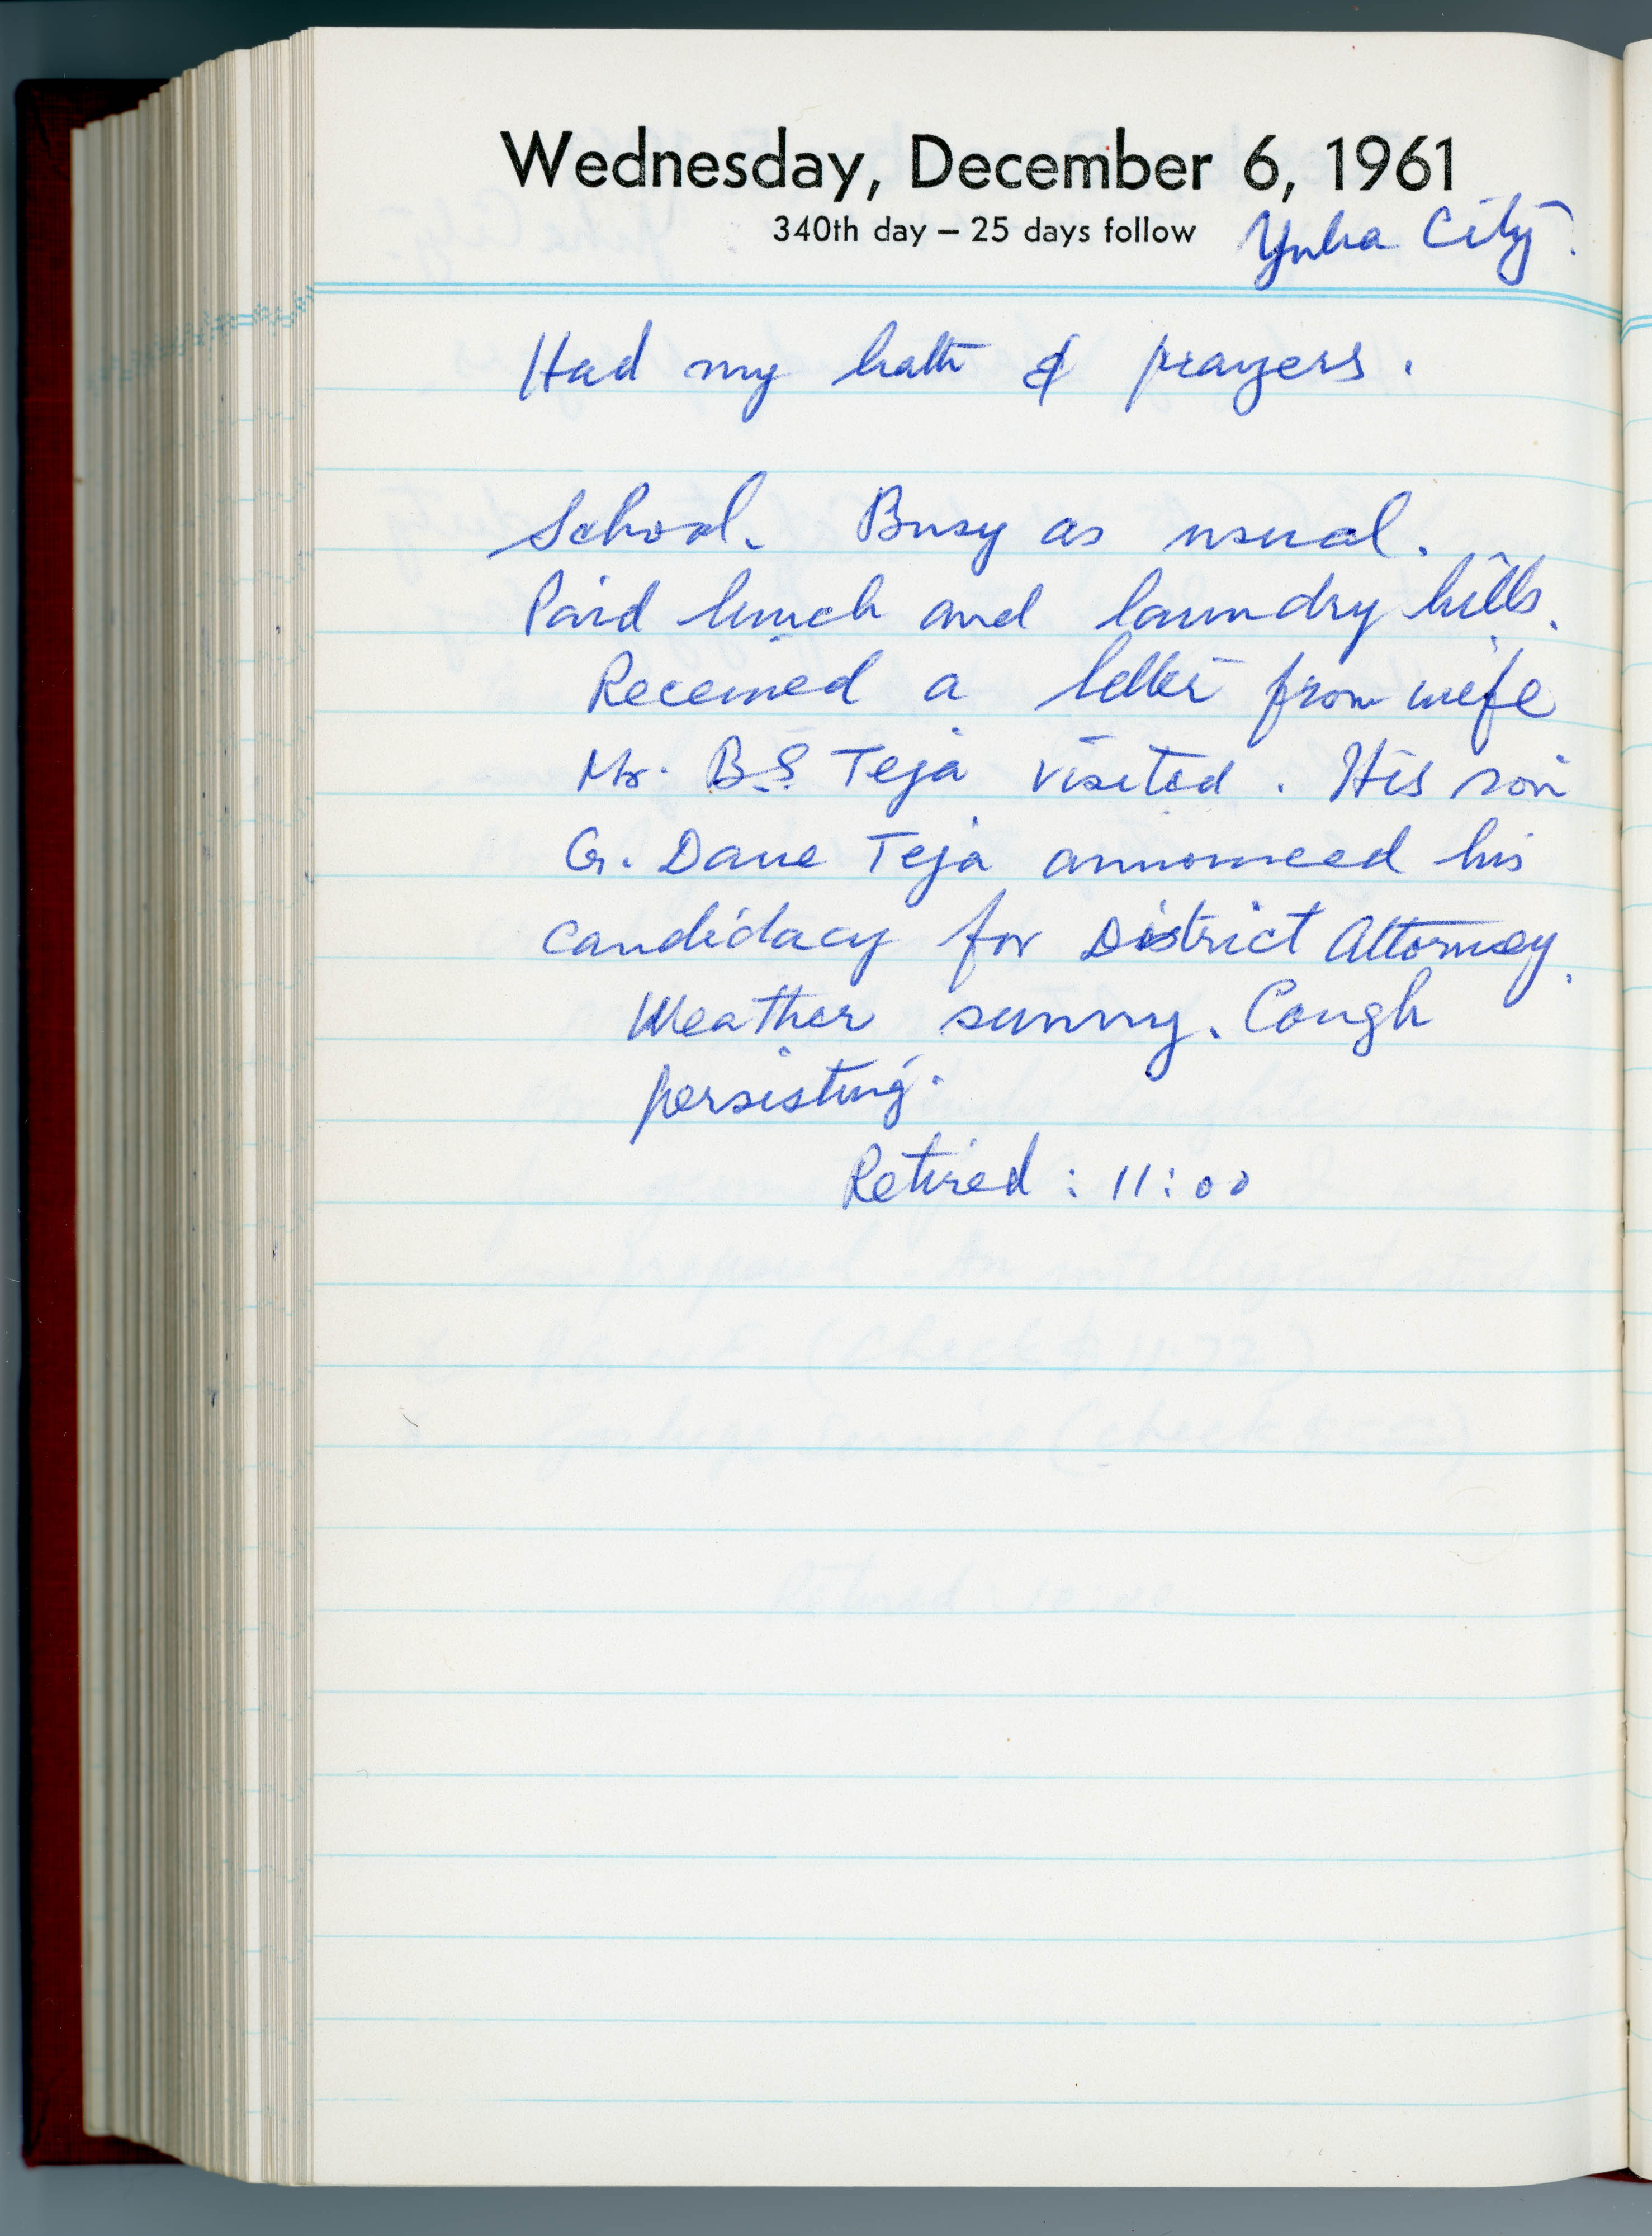 Wednesday, December 6, 1961
340th day – 25 days follow Yuba City.
Had my bath & prayers.
School. Busy as usual.
Paid lunch and laundry bills.
Received a letter from wife
Mr. B.S. Teja visited. His son
G. Dave Teja announced his
candidacy for District Attorney.
Weather sunny. Cough
persisting.
Retired : 11:00